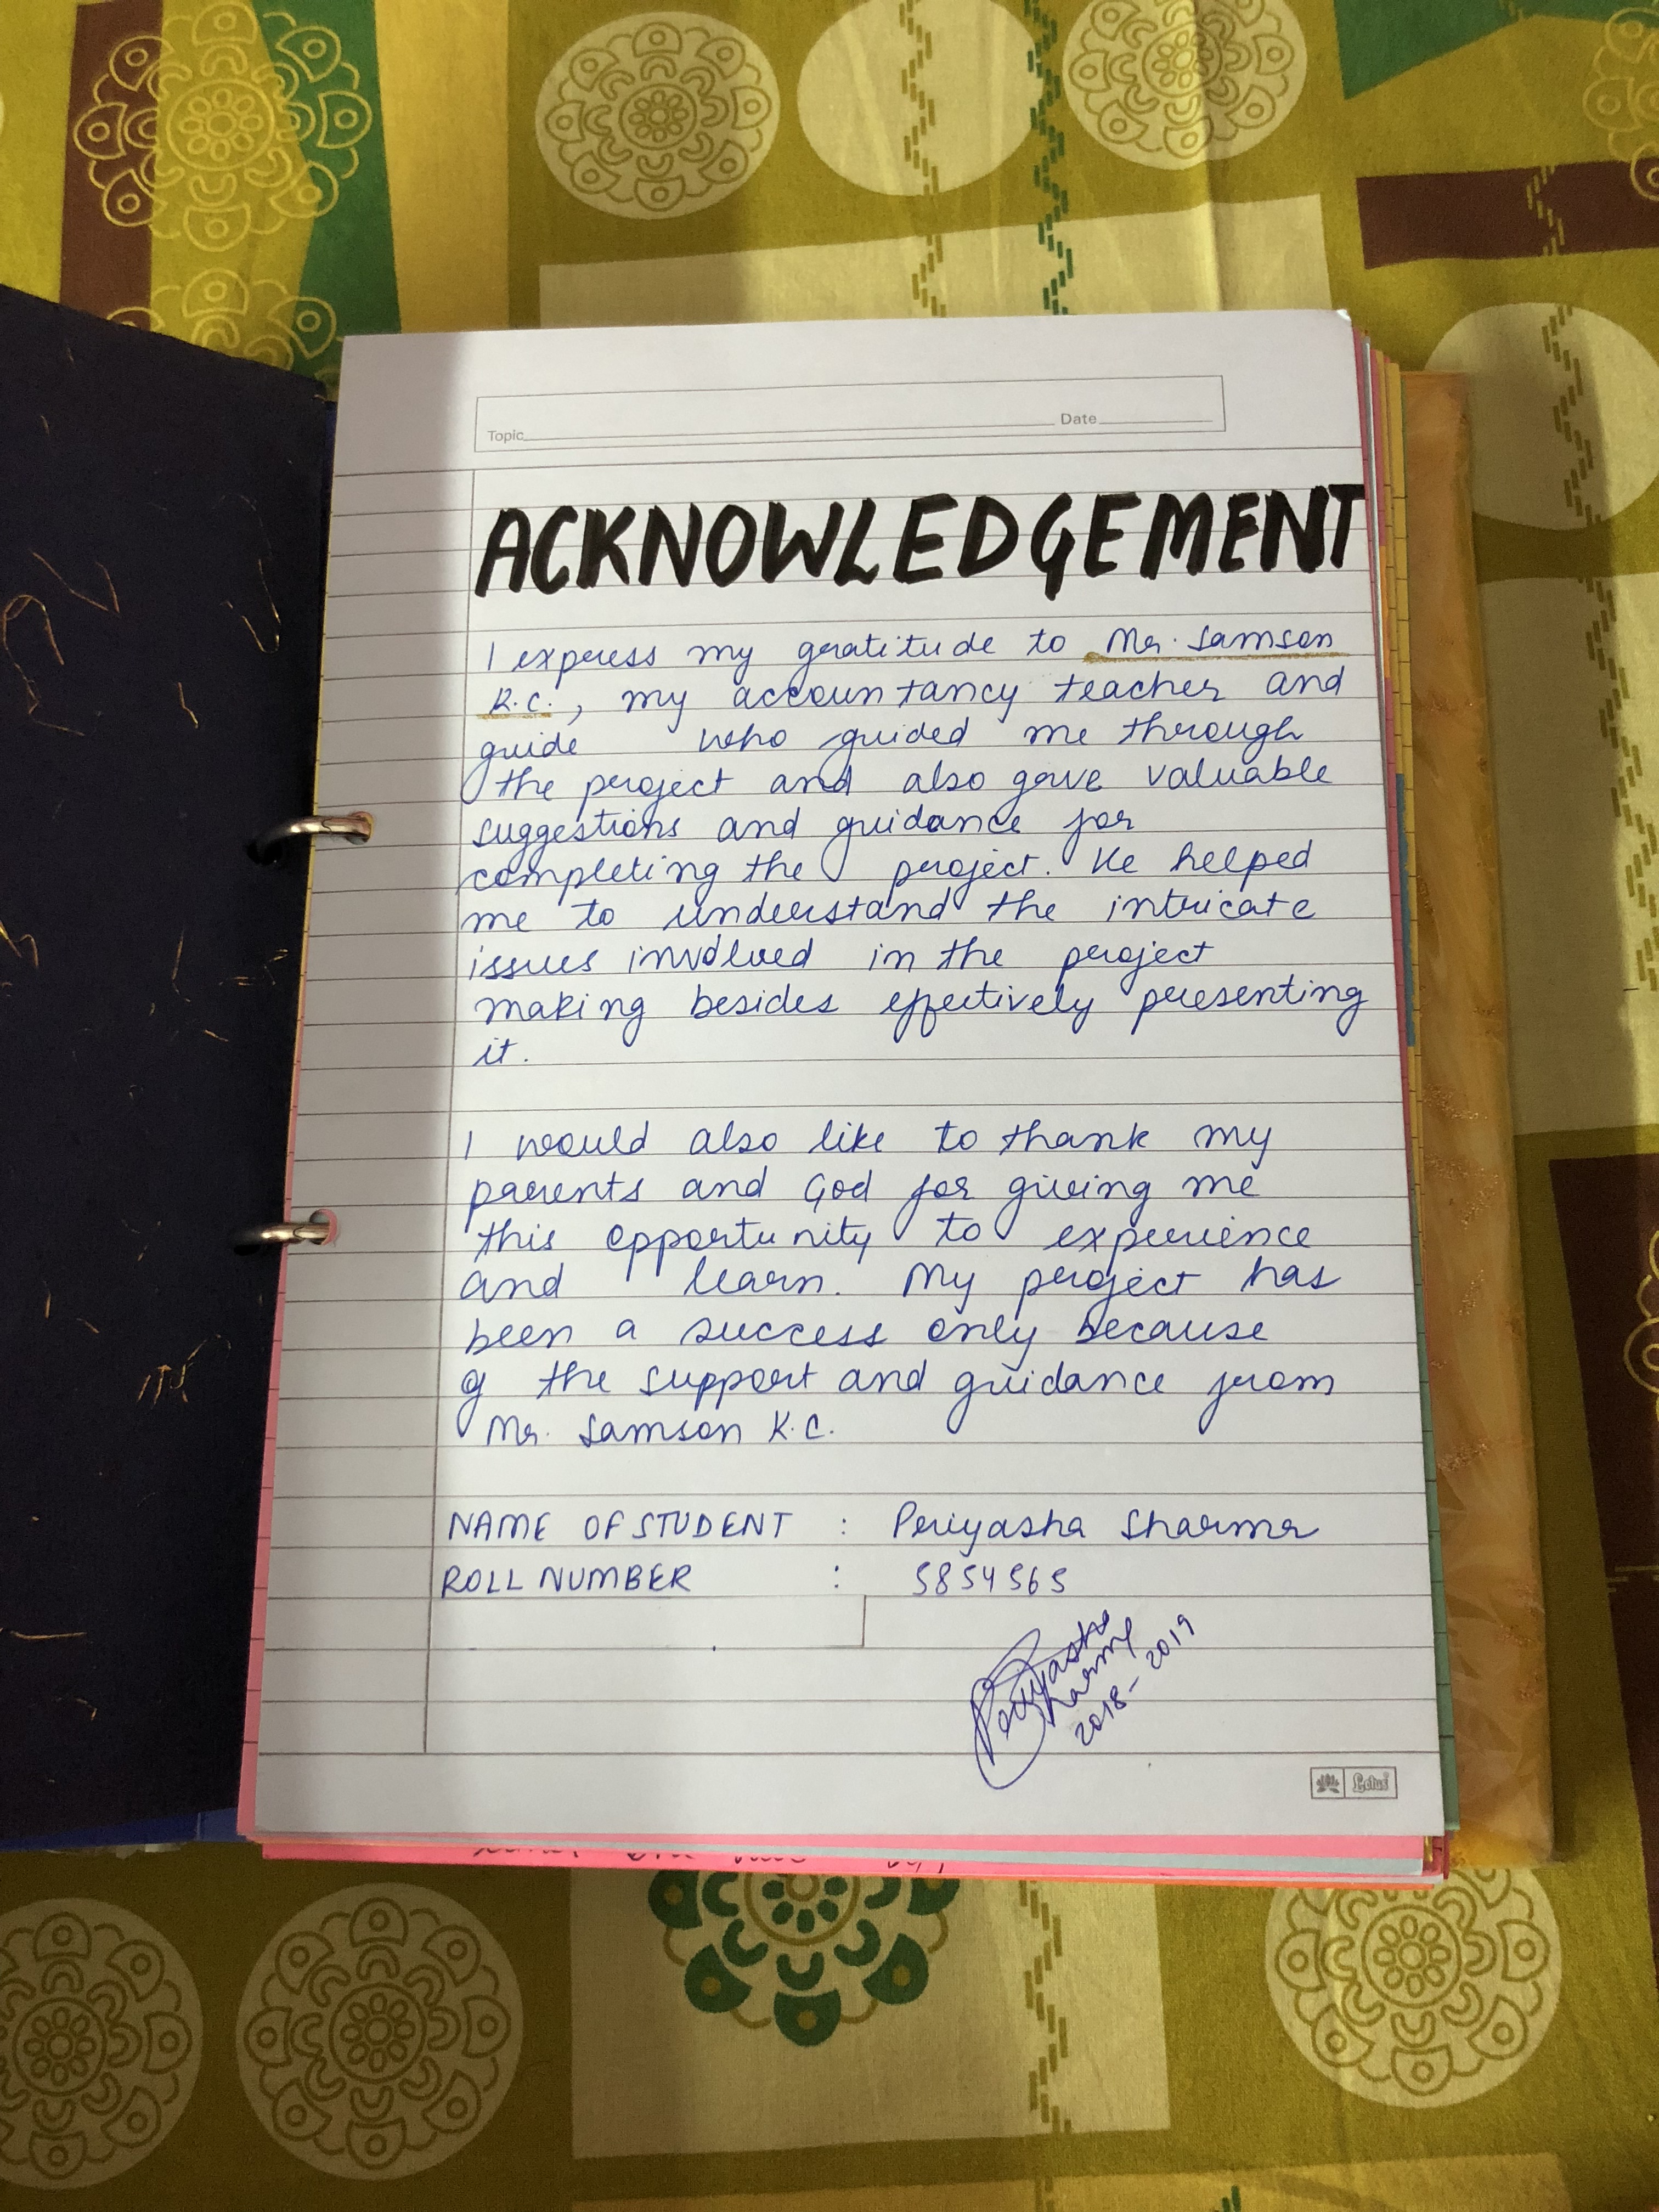 Topic Date
ACKNOWLEDGEMENT
I express my gratitude to Mr. Samson
K.C., my accountancy teacher and
guide who guided me through
the project and also gave valuable
suggestions and guidance for
completing the project. He helped
me to understand the intricate
issues involved in the project
making besides effectively presenting
it.
I would also like to thank my
parents and God for giving me
this opportunity to experience
and learn. My project has
been a success only because
of the support and guidance from
Mr. Samson K.C.
NAME OF STUDENT : Priyasha Sharma
ROLL NUMBER : 5854565
Priyasha
Sharma
2018-2019
Lotus